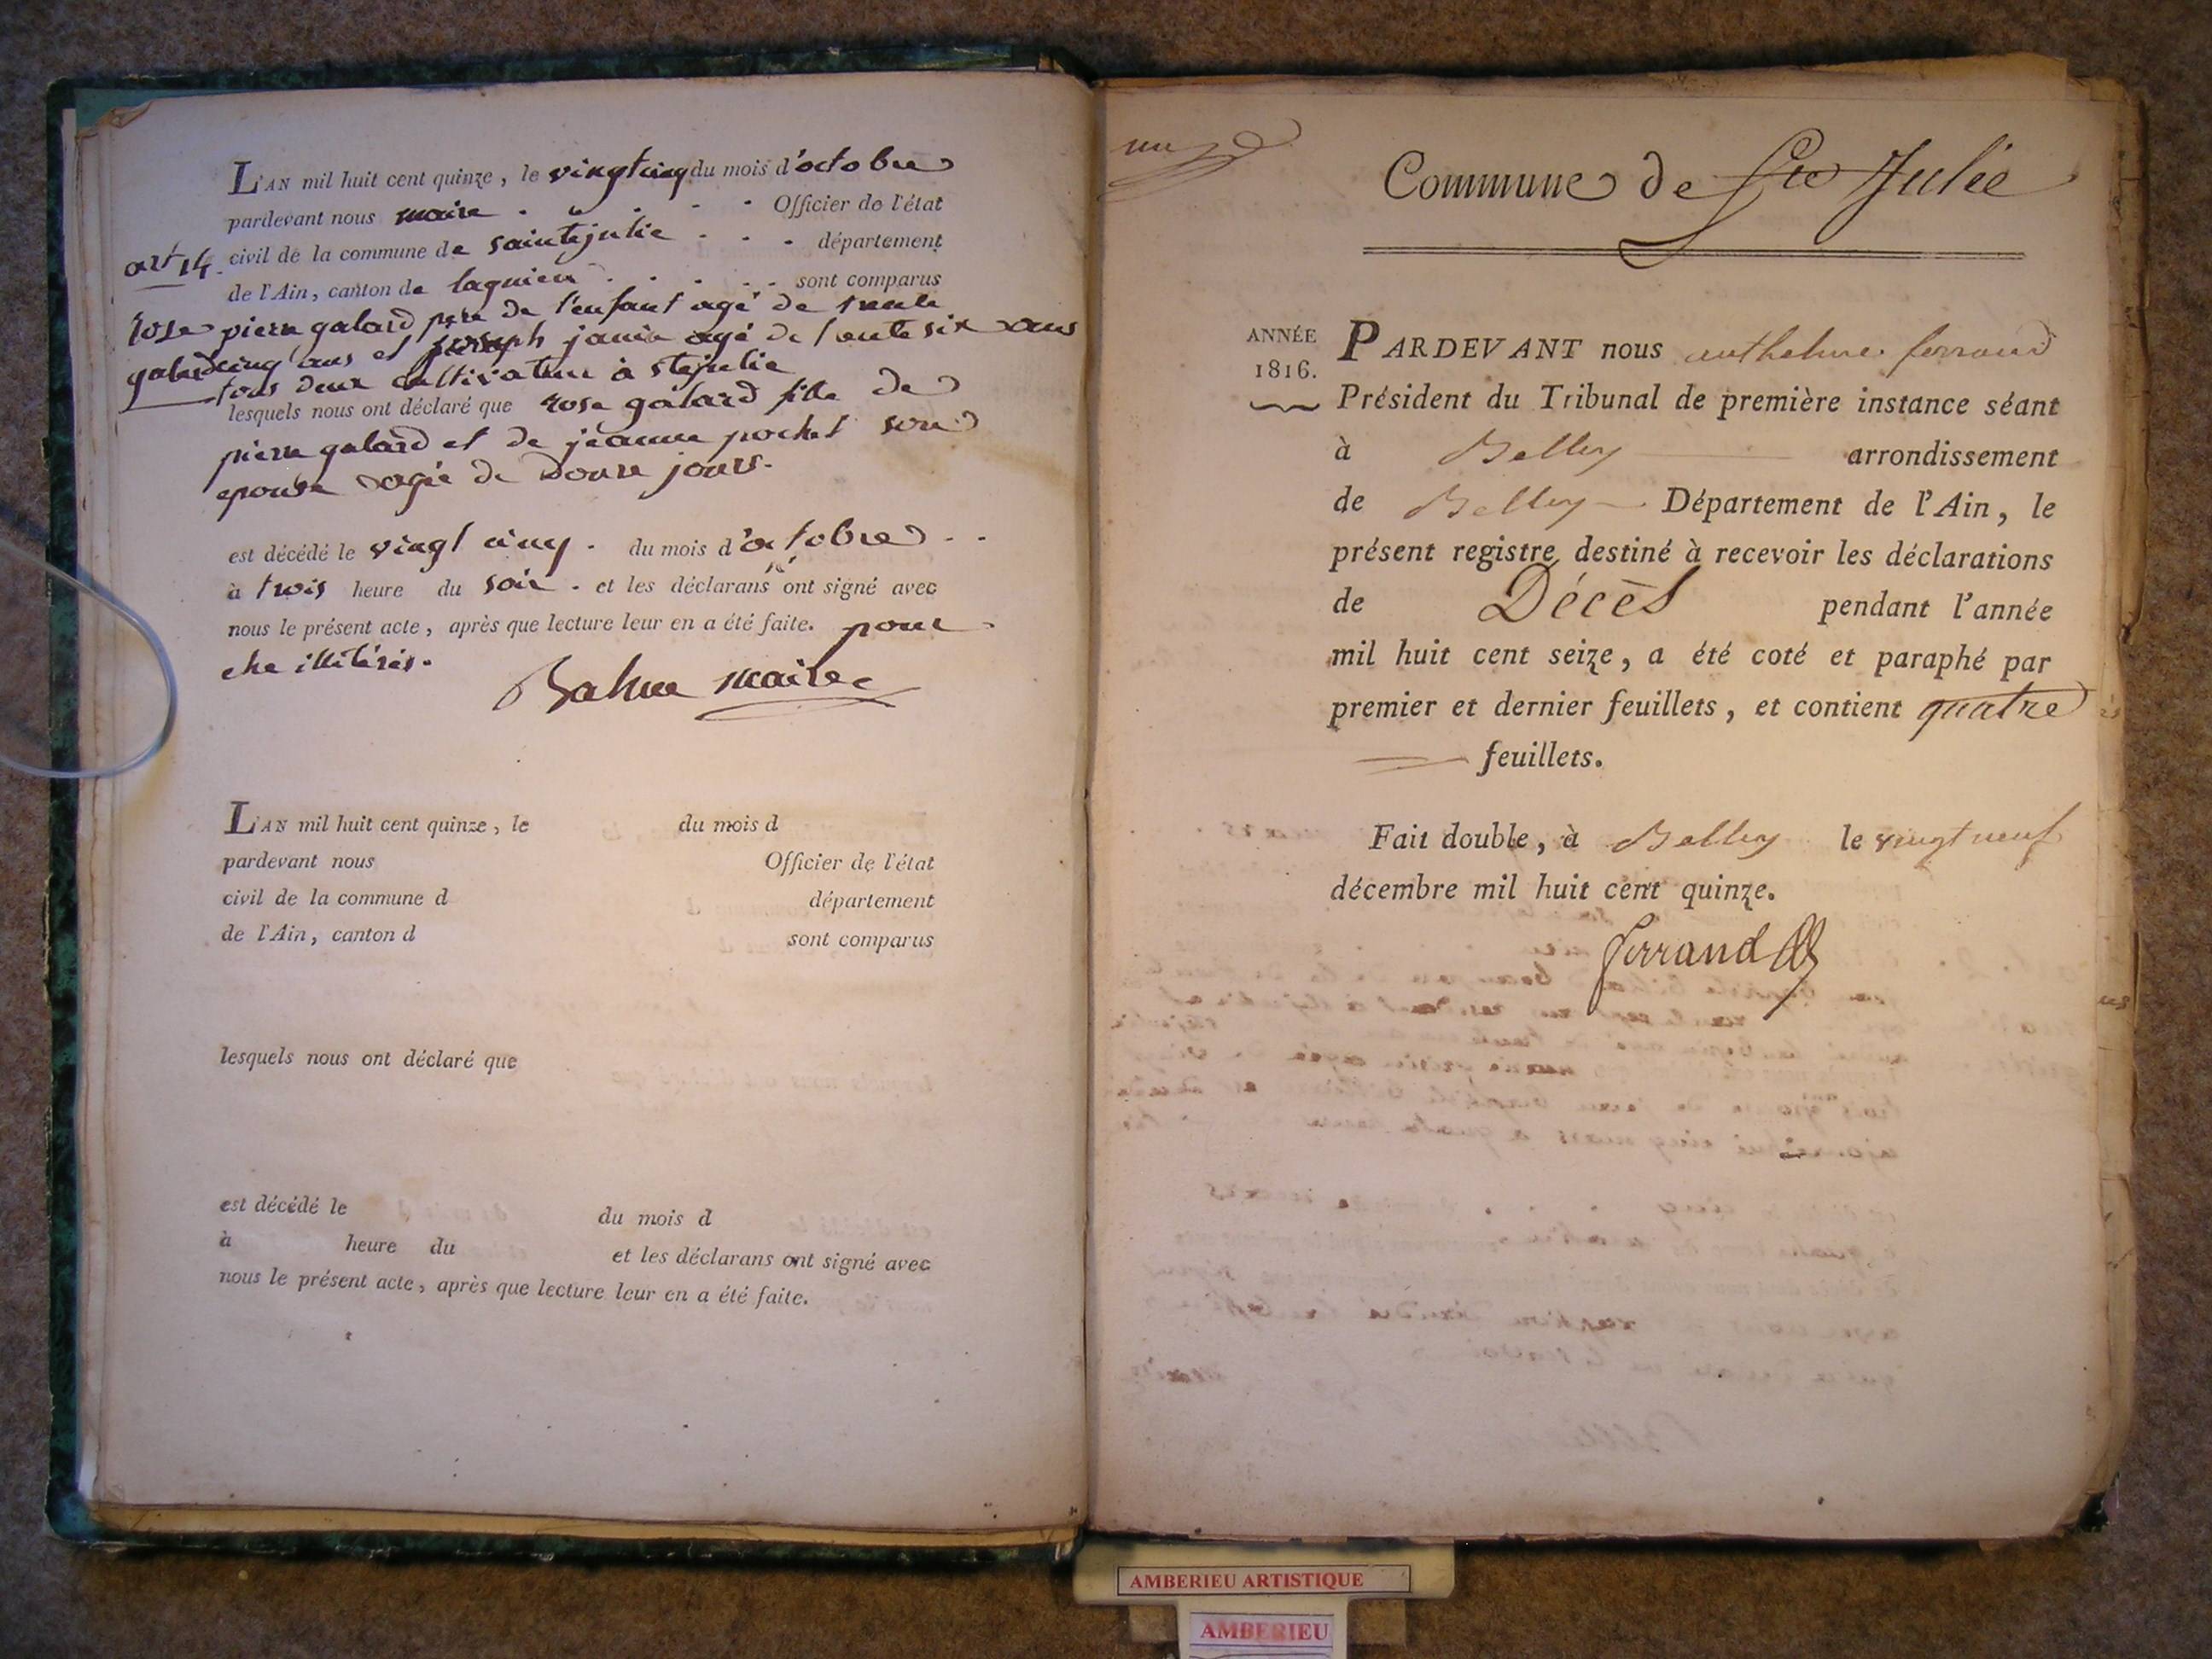 L'AN mil huit cent quinze, le vingtcinq du mois d'octobre
pardevant nous maire . . . . . Officier de l'état
civil de la commune de saintejulie . . . département
art 14.
de l'Ain, canton de lagnieu . . . . . sont comparus
rose galard
pierre galard père de l'enfant agé de trente
cinq ans et joseph janin agé de trente six ans
tous deux cultivateur à stejulie
lesquels nous ont déclaré que rose galard fille de
pierre galard et de jeanne pochet son
epouse agée de Douze jours.
est décédé le vingt cinq . du mois d'octobre . .
à trois heure du soir . et les déclarans ont signé avec
nous le présent acte, après que lecture leur en a été faite. pour
etre illitérés.
maire
L'AN mil huit cent quinze, le du mois d
pardevant nous Officier de l'état
civil de la commune d département
de l'Ain, canton d sont comparus
lesquels nous ont déclaré que
est décédé le du mois d
à heure du et les déclarans ont signé avec
nous le présent acte, après que lecture leur en a été faite.
un
Commune de Ste Julie
ANNÉE
1816.
PARDEVANT nous anthelme ferrand
Président du Tribunal de première instance séant
à Belley arrondissement
de Belley Département de l'Ain, le
présent registre destiné à recevoir les déclarations
de Décès pendant l'année
mil huit cent seize, a été coté et paraphé par
premier et dernier feuillets, et contient quatre
feuillets.
Fait double, à Belley le vingt neuf
décembre mil huit cent quinze.
ferrand
AMBERIEU ARTISTIQUE
AMBERIEU